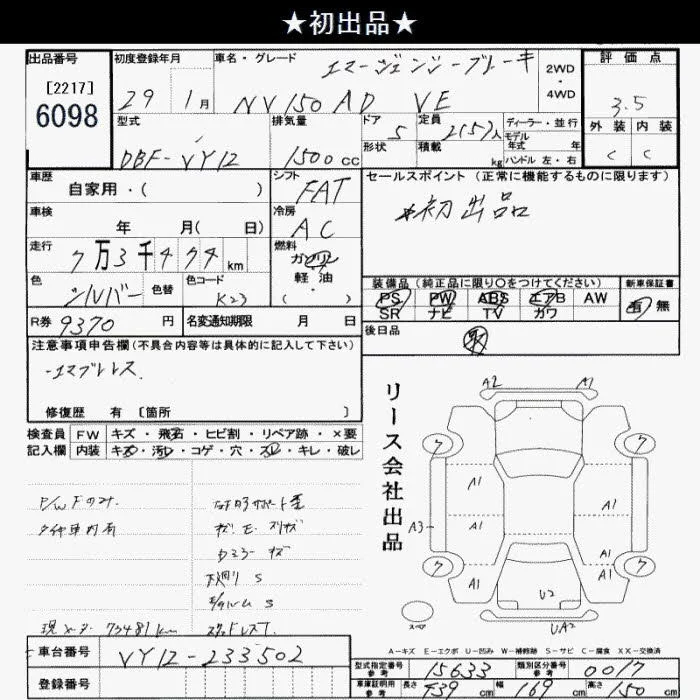 ★初出品★
出品番号
[2217]
6098
初度登録年月
29 1月
車名・グレード
エマージェンシーブレーキ
NV150 AD VE
2WD
・
4WD
評価点
3.5
外装 内装
C C
型式
DBF-VY12
排気量
1500cc
ドア 5
形状
定員 2(5)人
積載 kg
ディーラー・並行
モデル
年式 年
ハンドル 左・右
車歴
自家用・( )
シフト
FAT
冷房
AC
セールスポイント (正常に機能するものに限ります)
*初出品
車検
年 月( 日)
走行
7万3千474km
燃料
ガソリン
軽油
( ・ )
色
シルバー
色替
色コード
K23
装備品 (純正品に限り○をつけてください)
PS PW ABS エアB AW
SR ナビ TV カワ
新車保証書
有 無
R券 9370 円
名変通知期限 月 日
後日品
取
注意事項申告欄 (不具合内容等は具体的に記入して下さい)
-エマブレレス.
修復歴 有 [箇所 ]
検査員 FW キズ・飛石・ヒビ割・リペア跡・×要
記入欄 内装 キズ・汚れ・コゲ・穴・スレ・キレ・破レ
リース会社出品
A2 A1
ワ ワ
A1 A1
A3 A1 A1
A1 A1
ワ ワ
U2
UA2
スペア
P/W Fのみ.
タイヤ車内有
コアサポート歪
キズ.E.スリキズ
Dミラー キズ
下廻り S
S
スタッドレス1.
現メーター 73481km
A-キズ E-エクボ U-凹み W-補修跡 S-サビ C-腐食 XX-交換済
車台番号 VY12-233502
登録番号
型式指定番号
参考
15633
類別区分番号
参考
0017
車庫証明用
参考
長さ 439 cm 幅 169 cm 高さ 150 cm